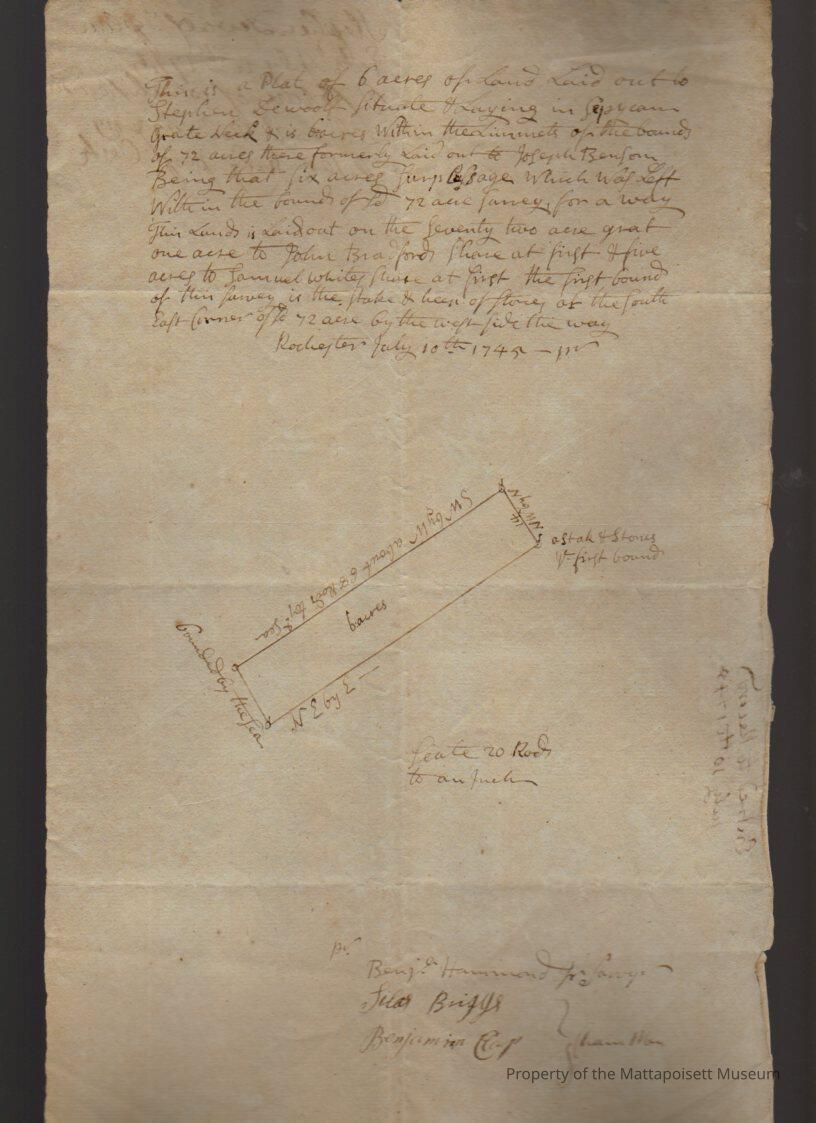 This is a Plat of 6 acres of Land Laid out to
Stephen Dewoolf situate & Laying in Sepycan
Grate Neck & is 6 acres Within the Limmets of the bounds
of 72 acres there formerly Laid out to Joseph Benson
Being that six acres surplusage Which Was Left
With in the bounds of sd 72 acre survey, for a way
This Lands is Laid out on the seventy two acre grat
one acre to John Bradfords share at first & five
acres to Samuel Whites share at first the first bound
of this survey is the stake & heep of stones at the south
East Corner of sd 72 acre by the west side the way
Rochester July 10th 1745 — pr
NW by N
14
SW by W about 67 Rods to ye Sea
a Stak & Stones
ye first bound
6 acres
bounded by the Sea
E by E N
Scale 20 Rods
to an Inch
pr
Benja Hammond Jr
Silas Briggs
Benjamin Clap
Property of the Mattapoisett Museum